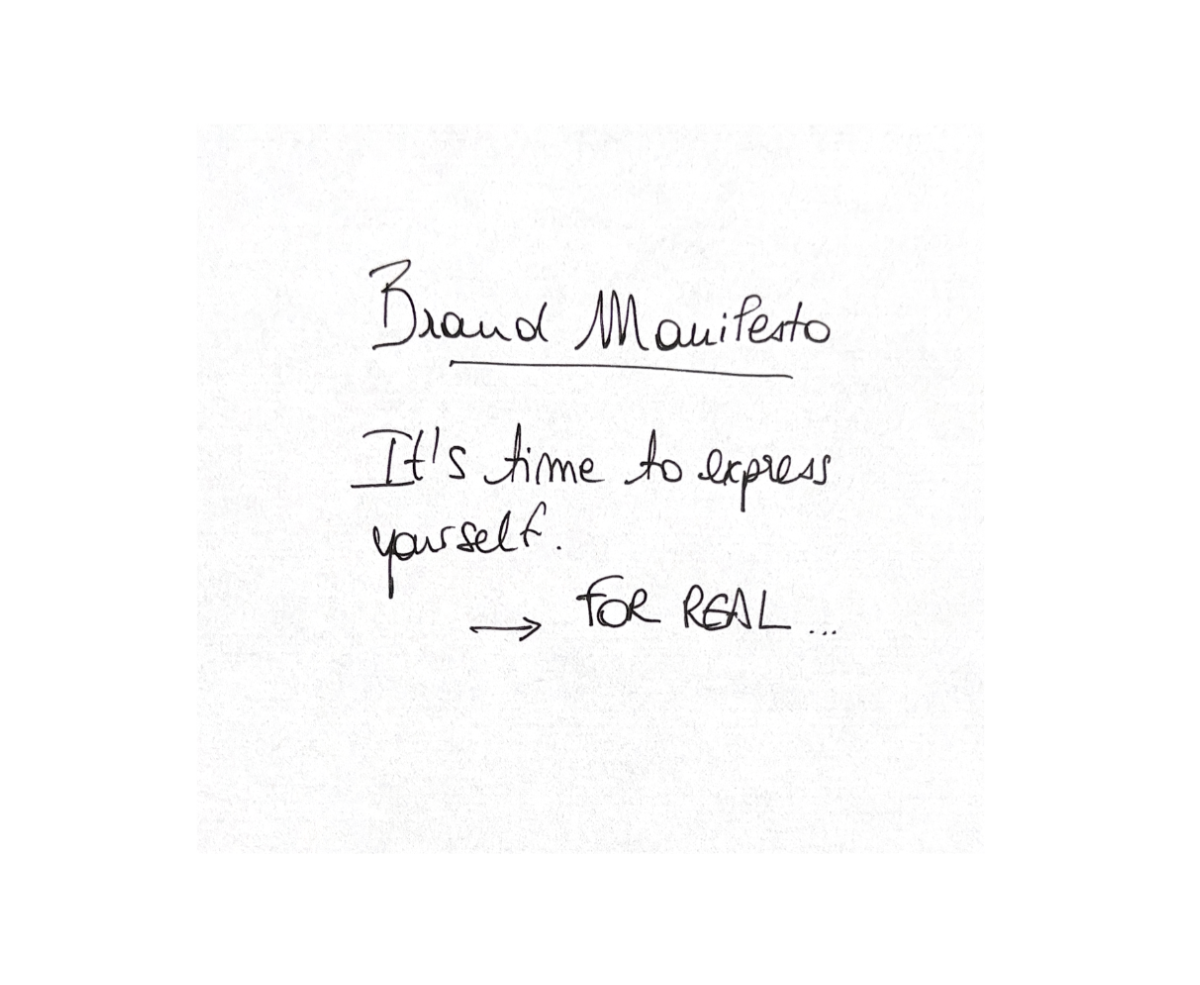 Brand Manifesto
It's time to express
yourself.
→ FOR REAL...